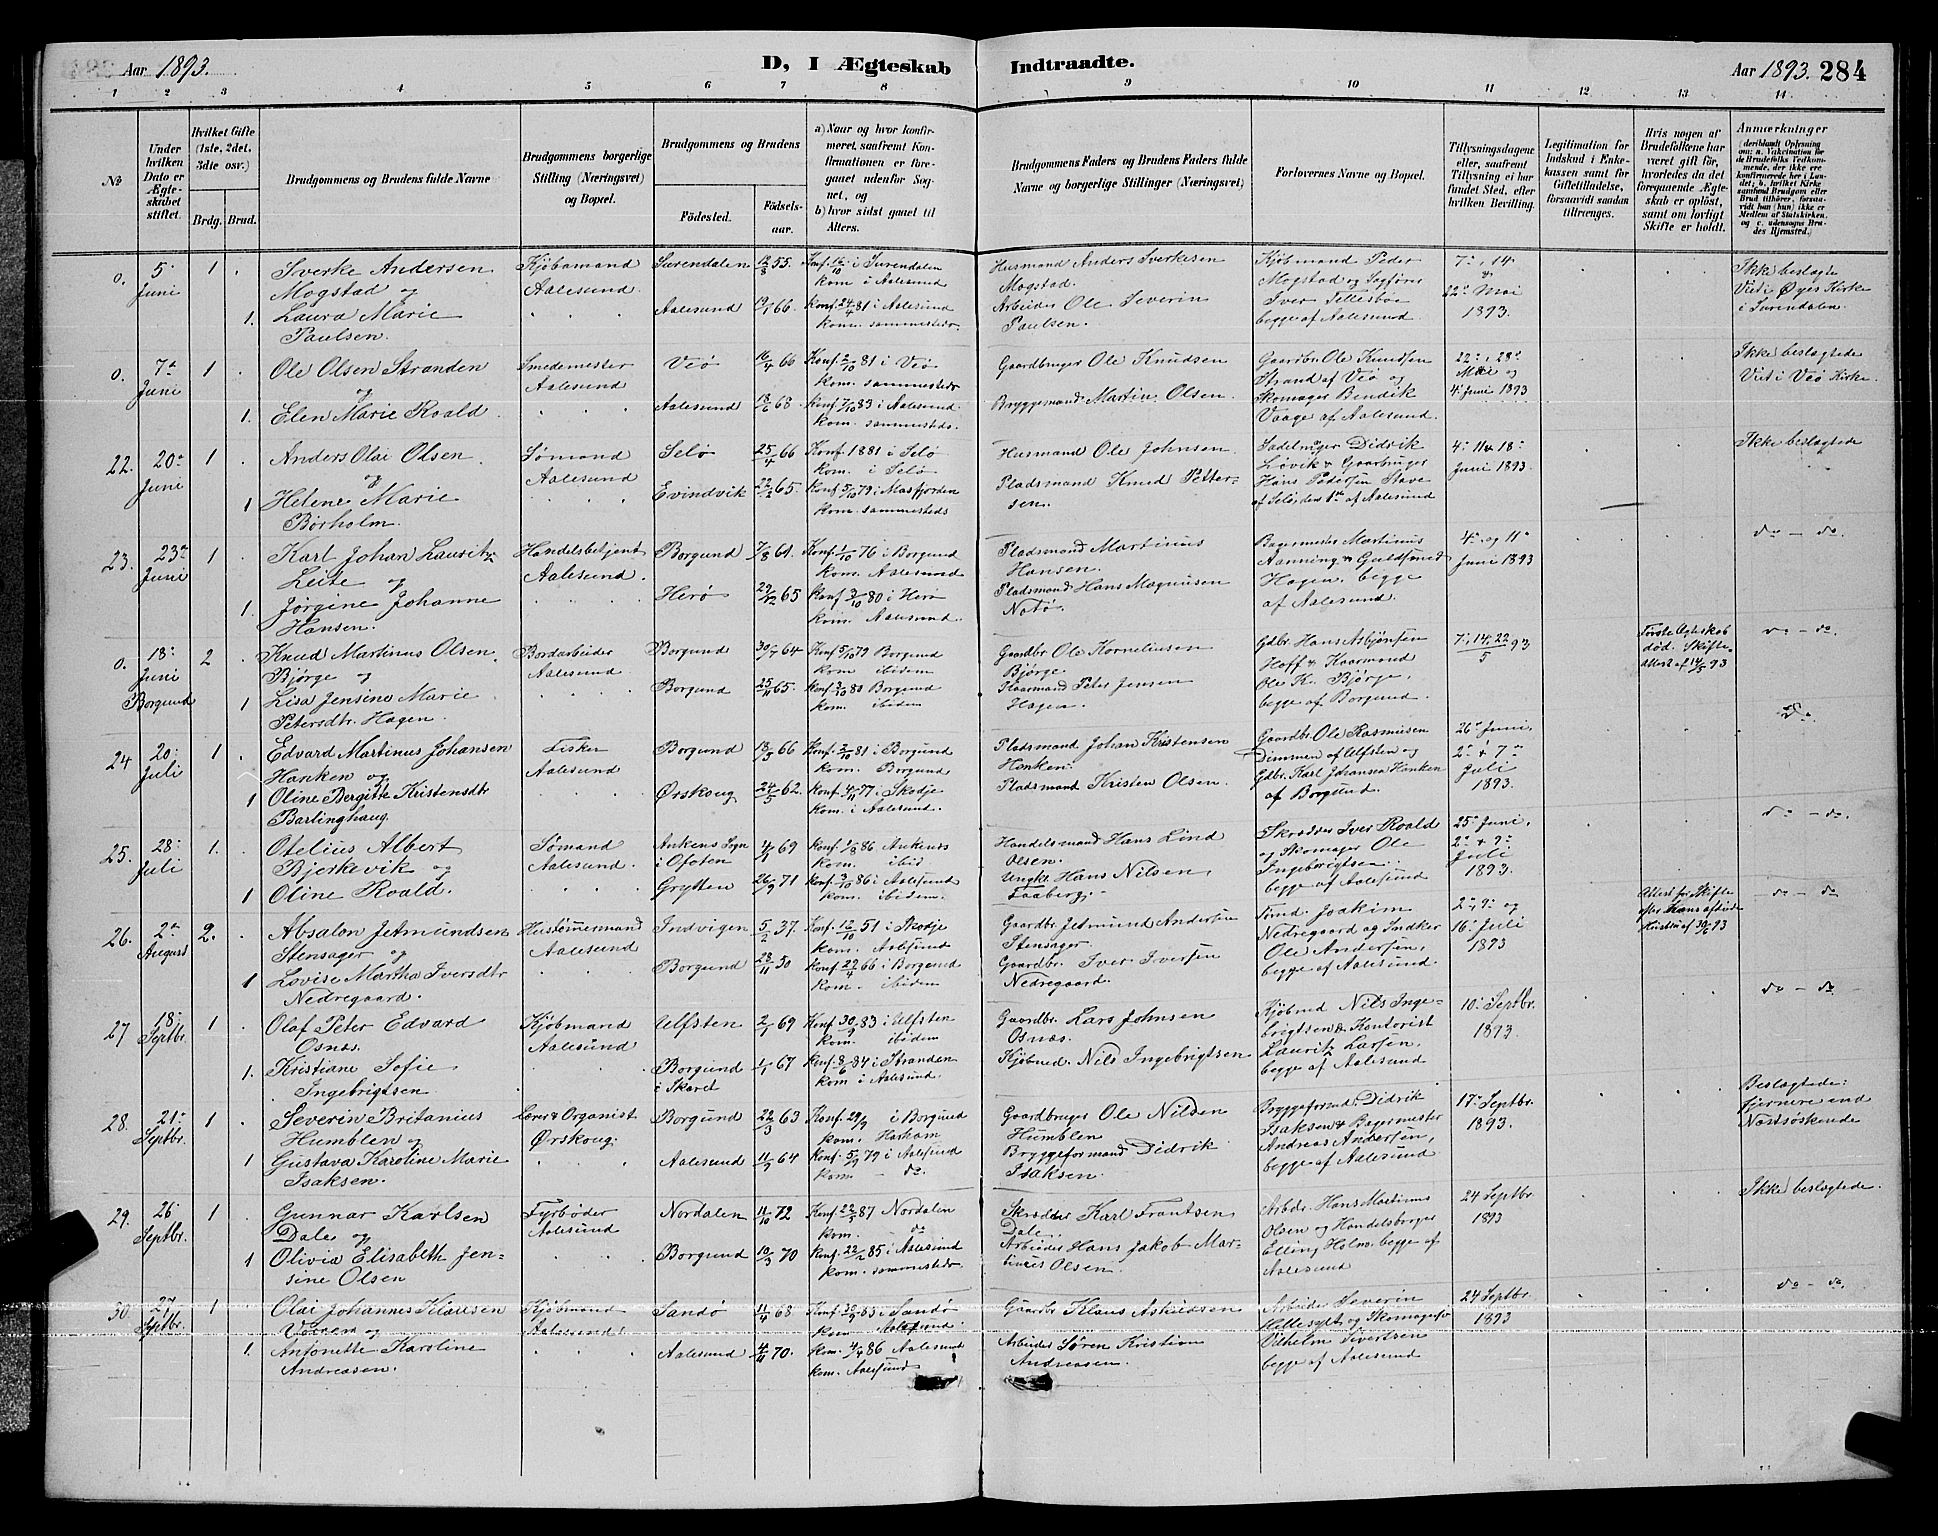 Aar 1893.
D, I Ægteskab Indtraadte.
Aar 1893. 284
1 2 3 4 5 6 7 8 9 10 11 12 13 14
№
Under hvilken Dato er Ægteskabet stiftet.
Hvilket Gifte (1ste, 2det, 3die osv.)
Brdg. Brud.
Brudgommens og Brudens fulde Navne
Brudgommens borgerlige Stilling (Næringsvei) og Bopæl.
Brudgommens og Brudens
Fødested. Fødselsaar.
a) Naar og hvor konfirmeret, saafremt Konfirmationen er foregaaet udenfor Sognet, og
b) hvor sidst gaaet til Alters.
Brudgommens Faders og Brudens Faders fulde Navne og borgerlige Stillinger (Næringsvei)
Forlovernes Navne og Bopæl.
Tillysningsdagene eller, saafremt Tillysning ei har fundet Sted, efter hvilken Bevilling.
Legitimation for Indskud i Enkekassen samt for Giftetilladelse, forsaavidt saadan tiltrænges.
Hvis nogen af Brudefolkene har været gift før, hvorledes da det foregaaende Ægteskab er opløst, samt om lovligt Skifte er holdt.
Anmærkninger (deriblandt Oplysning om: a. Vakcination for de Brudefolks Vedkommende, der ikke ere konfirmerede her i Landet; b. hvilket Kirkesamfund Brudgom eller Brud tilhører, forsaavidt han (hun) ikke er Medlem af Statskirken, og c. udensogns Brudes Hjemsted.
0. 5- Juni 1 Sverke Andersen Mogstad og Kjøbmand Aalesund. Surendalen 12/8 55. Konf. 16/10 i Surendalen kom i Aalesund Husmand Anders Sverkesen Mogstad. Kjøbmand Peder Mogstad og Sagfører Iver Tellesbø begge af Aalesund. 7-, 14 & 22- Mai 1893. Ikke beslægtede Viet i Øyes Kirke i Surendalen.
1. Laura Marie Paulsen. Aalesund 19/1 66 Konf. 24/4 81 i Aalesund kom. sammesteds Arbeider Ole Severin Paulsen.
0. 7- Juni 1 Ole Olsen Stranden og Smedemester Aalesund Veø 16/4 66 Konf. 2/10 81 i Veø kom. sammesteds Gaardbruger Ole Knudsen Gaardbr. Ole Knudsen Strand af Veø og Skomager Bendik Vaage af Aalesund. 22-, 28- Mai og 4- Juni 1893 Ikke beslægtede Viet i Veø Kirke.
1. Elen Marie Roald. Aalesund 18/6 68. Konf. 7/10 83 i Aalesund. kom. sammesteds. Bryggemand Martin Olsen.
22. 20- Juni 1 Anders Olai Olsen og Sømand Aalesund Selø 25/4 66 Konf 1881 i Selø kom. i Selø Husmand Ole Johnsen Sadelmager Didrik Løvik & Gaarbruger Hans Pedersen Stave af Selø, den 1ste af Aalesund 4- 11 & 18- Juni 1893. Ikke beslægtede
1 Helene Marie Børholm. Evindvik 22/2 65. Konf 5/10 79 i Masfjorden kom. sammesteds Pladsmand Knud Pettersen.
23. 23- Juni 1 Karl Johan Lauritz Leite og Handelsbetjent Aalesund. Borgund 7/8 61. Konf. 1/10 76 i Borgund kom. Aalesund Pladsmand Martinus Hansen. Bagermester Martinus Aanning & Guldsmed Hagen, begge af Aalesund. 4- og 11- Juni 1893 do - do.
1. Jørgine Johanne Hansen. Herø 29/12 65 Konf 3/10 80 i Herø kom. Aalesund. Pladsmand Hans Magnusen Notø.
0. 18- Juni Borgund 2 Knud Martinus Olsen Bjørge og Bordarbeider Aalesund Borgund 30/7 64 Konf 5/10 79 Borgund kom ibidem Gaardbr. Ole Korneliusen Bjørge. Gdbr. Hans Asbjønsen Hoff & Kaarmand Ole K. Bjørge, begge af Borgund. 7-, 14, 22/5 93 Første Egteskab død. Skifteattest af 14/5 93 do - do.
1 Lisa Jensine Marie Petersdtr. Hagen. Borgund 25/11 65. Konf. 3/10 80 Borgund kom. ibidem Peter Jensen Hagen.
24 20- Juli 1 Edvard Martinus Johansen Hanken og Fisker Aalesund Borgund 13/3 66 Konf. 2/10 81 i Borgund kom. Borgund Pladsmand Johan Kristensen Hanken. Gaardbr. Ole Rasmusen Dimmen af Ulfsten og Gdbr. Karl Johansen Hanken af Borgund. 26- Juni, 2- & 7- Juli 1893. Do.
1 Oline Bergitte Kristensdtr Barlinghaug. Ørskoug 24/5 62. Konf. 4/11 77 i Skodje kom. i Aalesund. Pladsmand Kristen Olsen.
25. 28- Juli 1. Otelius Albert Bjerkevik og Sømand Aalesund. Ankens Sogn i Ofoten 4/1 69 Konf. 1/8 86 Ankens kom. ibid. Handelsmand Hans Lind Olsen. Skrædder Iver Roald og Skomager Ole Ingebrigtsen. begge af Aalesund 25- Juni, 2- & 9- Juli 1893. do - do.
1 Oline Roald. Grytten 26/9 71 Konf. 3/10 86 i Aalesund kom. ibidem. Ungkr. Hans Nilsen Faaberg.
26. 2- August 2. Absalon Jetmundsen Stensager og Hustømmermand Aalesund Indvigen 5/2 37. Konf. 12/10 51 i Skodje kom. Aalesund Gaardbr. Jetmund Andersen Stensager. Tømd. Joakim Nedregaard og Snedker Ole Andersen, begge af Aalesund. 2-, 9- og 16- Juli 1893 Attest for Skifte efter Hans afdøde Hustru af 30/6 93 do - do
1 Lovise Martha Iversdtr Nedregaard. Borgund 28/11 50 Konf. 29/4 66 i Borgund kom. ibidem Gaardbr. Iver Iversen Nedregaard.
27 18- Septbr. 1 Olaf Peter Edvard Osnæs. Kjøbmand Aalesund Ulfsten 2/1 69 Konf 30/9 83 i Ulfsten kom. ibidem Gaardbr. Lars Johnsen Osnæs. Kjøbmd Nils Ingebrigtsen & Kontorist Lauritz Larsen, begge af Aalesund 10- Septbr. 1893. do - do.
1. Kristiane Sofie Ingebrigtsen. Borgund i Skaret 1/1 67 Konf 8/6 84 i Stranden kom i Aalesund. Kjøbmd. Nils Ingebrigtsen
28. 21- Septbr. 1 Severin Britanius Humblen og Lærer & Organist Ørskoug. Borgund 22/3 63 Konf. 29/9 i Borgund kom. Harham Gaardbruger Ole Nilsen Humblen Bryggeformd. Didrik Isaksen & Bagermester Andreas Andersen, begge af Aalesund 17- Septbr. 1893. Beslægtede: fjernere end Næstsøskende
1 Gustava Karoline Marie Isaksen. Aalesund 11/9 64 Konf. 5/9 79 i Aalesund kom. - do. Bryggeformand Didrik Isaksen.
29. 26- Septbr. 1 Gunnar Karlsen Dale og Fyrbøder Aalesund Nordalen 11/10 72 Konf. 22/5 87 Nordalen kom. do Skrædder Karl Frantsen Dale. Arbdr. Hans Martinus Olsen og Handelsborger Elling Holm, begge af Aalesund 24 Septbr 1893 Ikke beslægtede.
1 Olivia Elisabeth Jensine Olsen Borgund 10/3 70 Konf. 22/2 85 i Aalesund kom. sammesteds Arbeider Hans Jakob Martinus Olsen.
30. 27- Septbr. 1 Olai Johannes Klausen Voren og Kjøbmand Aalesund. Sandø 11/4 68 Konf 30/9 83 i Sandø kom Aalesund. Gaardbr Klaus Askildsen Arbeider Severin Hellesylt og Skomagersv Vilhelm Sivertsen begge af Aalesund 24 Septbr. 1893 do - do.
1. Antonette Karoline Andreasen. Aalesund 4/11 70. Kom. 4/4 86 Aalesund kom. Aalesund Arbeider Søren Kristian Andreasen.